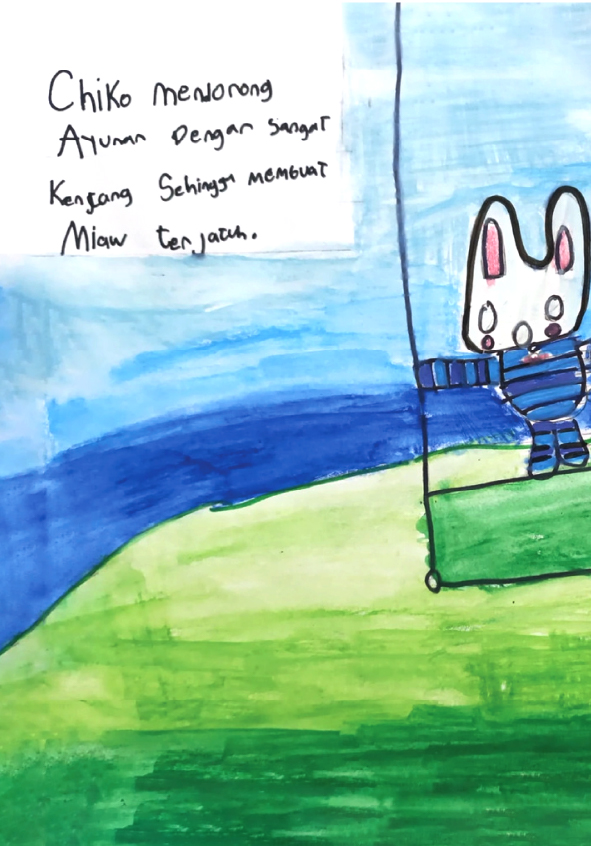 Chiko mendorong
Ayunan Dengan Sangat
Kencang Sehingga MEMBUAT
Miaw terjatuh.